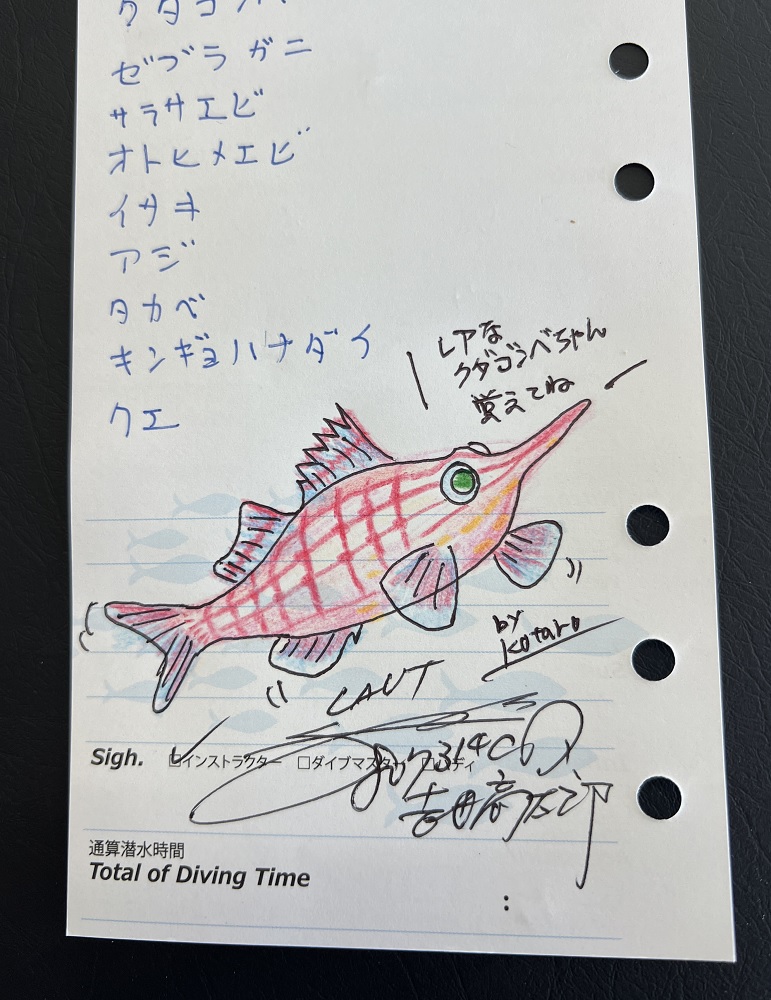 クダゴンベ
ゼブラガニ
サラサエビ
オトヒメエビ
イサキ
アジ
タカベ
キンギョハナダイ
クエ
レアな
クダゴンベちゃん
覚えてね
by
Kotaro
Sigh. ☑インストラクター □ダイブマスター
通算潜水時間
Total of Diving Time
: